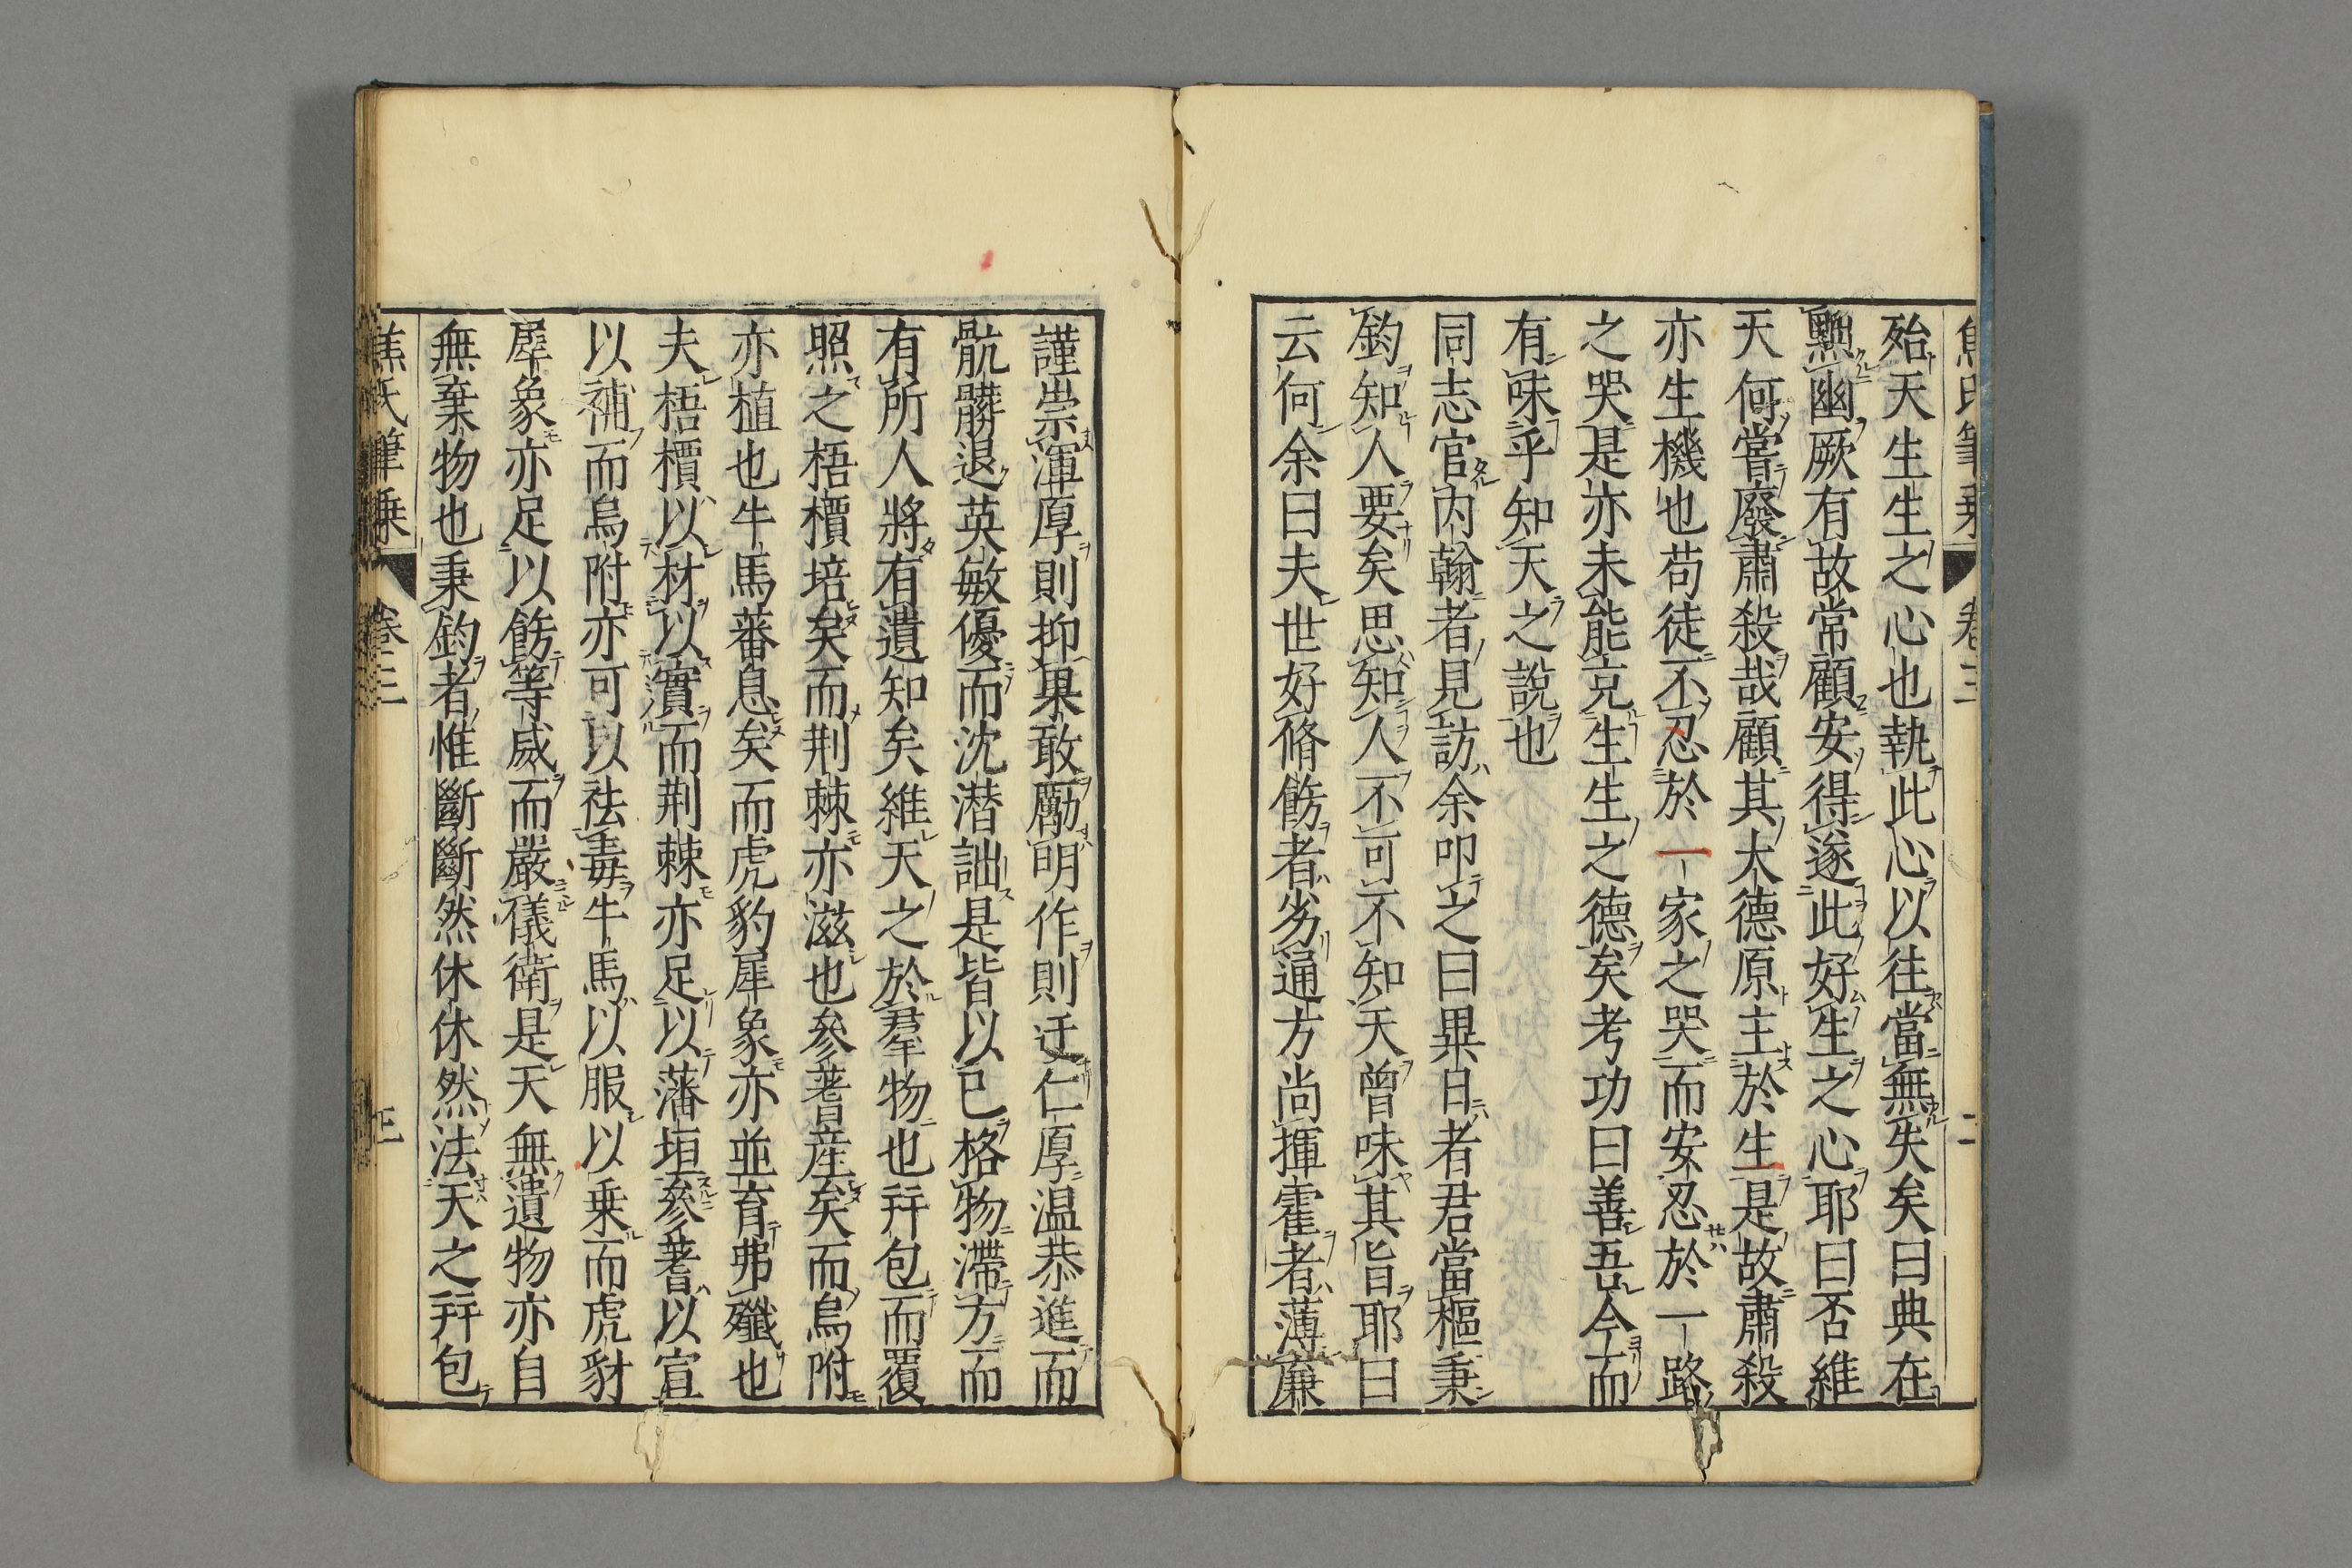 焦氏筆乗 卷三 二
殆天生生之心也執此心以往當無失矣曰典在
黜幽厥有故常顧安得遂此好生之心耶曰否維
天何嘗廢肅殺哉顧其大德原主於生是故肅殺
亦生機也苟徒不忍於一家之哭而安忍於一路
之哭是亦未能亮生生之德矣考功曰善吾今而
有味乎知天之說也
同志官內翰者見訪余叩之曰異日者君當樞秉
鈞知人要矣思知人不可不知天曾味其旨耶曰
云何余曰夫世好脩飭者劣通方尚揮霍者薄廉
謹崇渾厚則抑果敢勵明作則迂仁厚溫恭進而
骯髒退英敏優而沈潛詘是皆以已格物滯方而
有所人將有遺知矣維天之於羣物也并包而覆
照之梧檟培矣而荆棘亦滋也參蓍産矣而烏附
亦植也牛馬蕃息矣而虎豹犀象亦並育弗殱也
夫梧檟以材以實而荆棘亦足以藩垣參蓍以宣
以補而烏附亦可以祛毒牛馬以服以乗而虎豺
犀象亦足以飭等威而嚴儀衛是天無遺物亦自
無棄物也秉鈞者惟斷斷然休休然法天之并包
焦氏筆乗 卷三 三